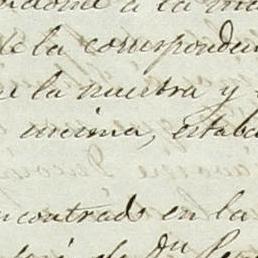 a la
de la correspondan
la nuestra y
encima, estaba
ncontrado en la
de Dn